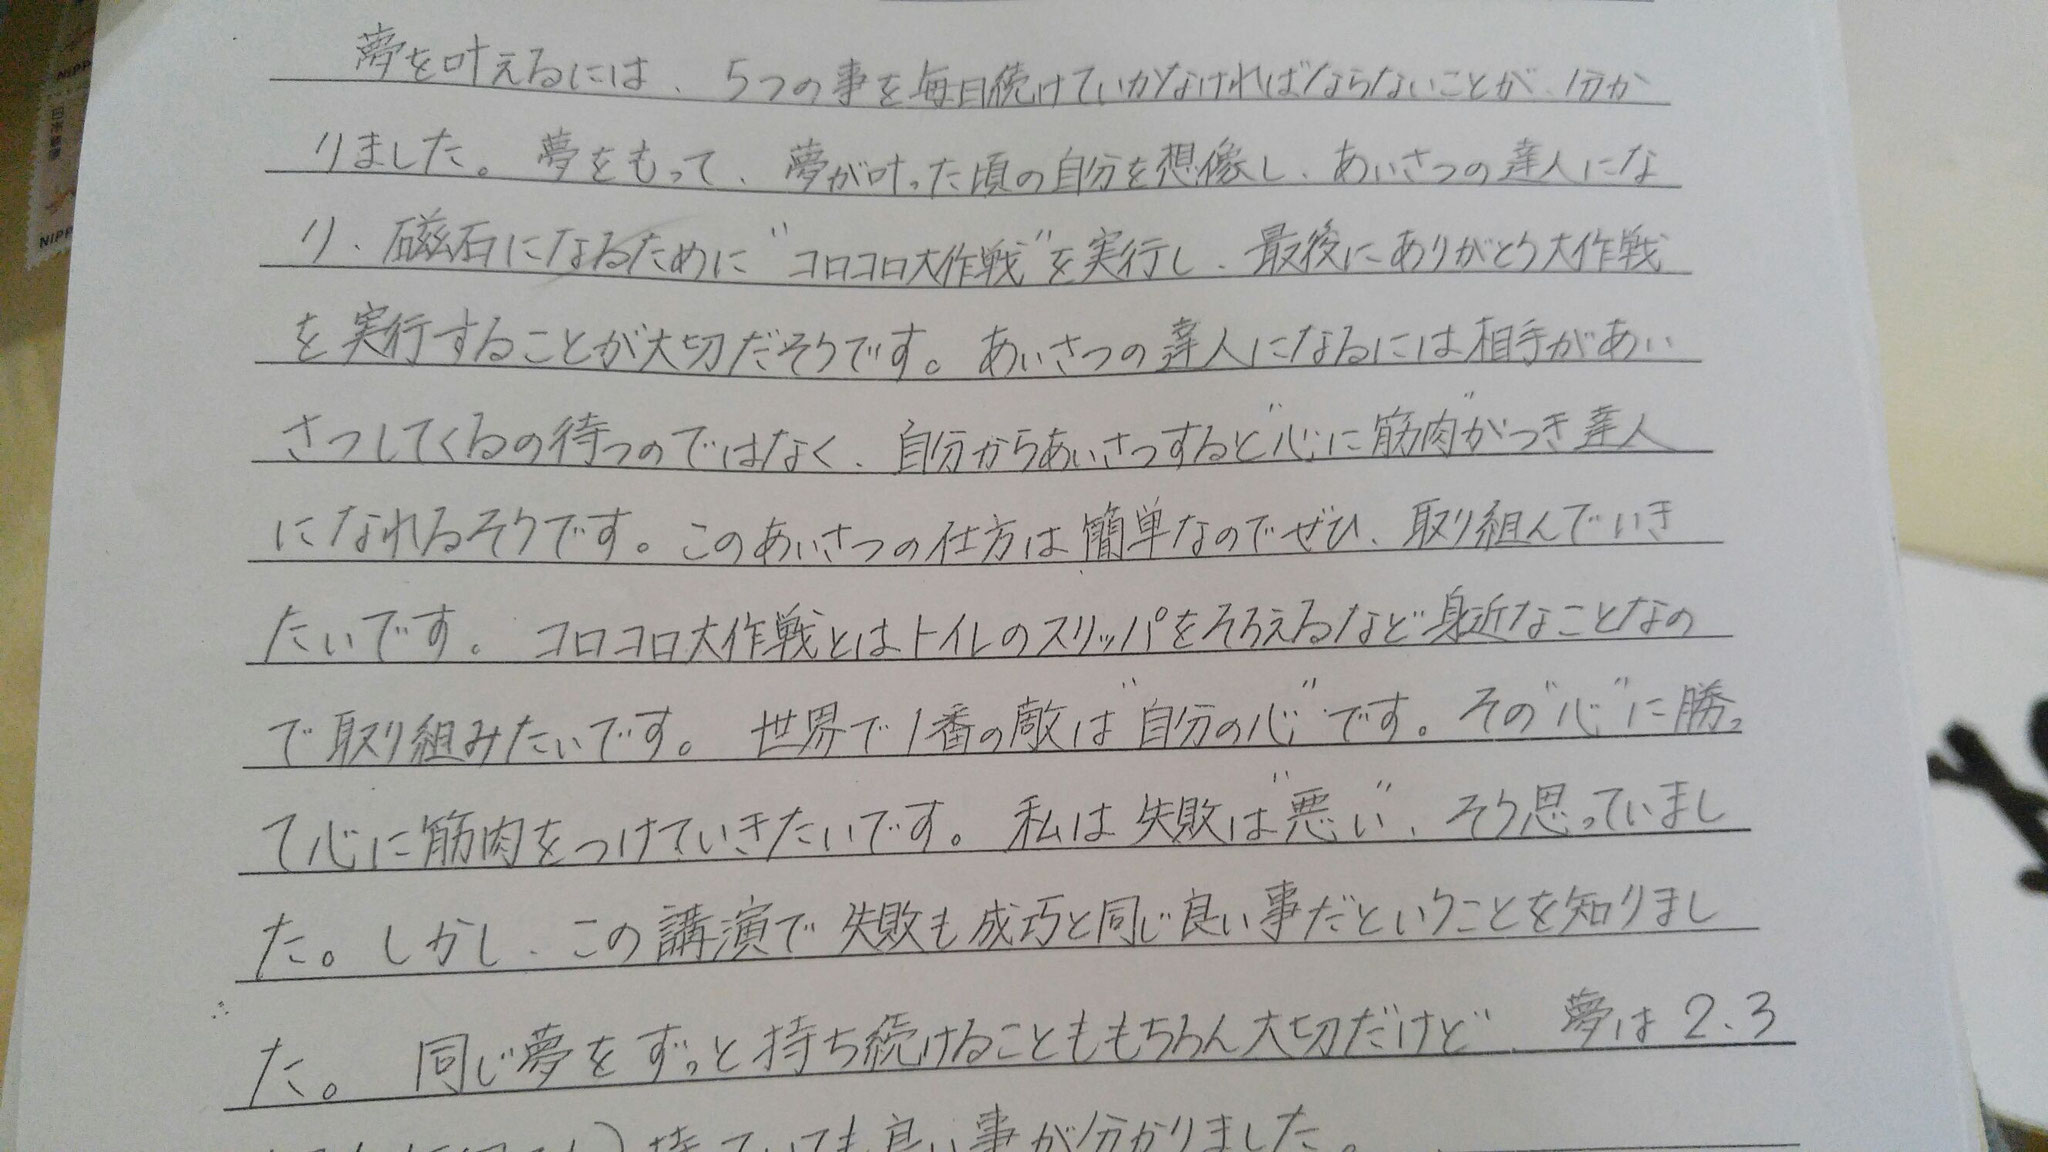 夢を叶えるには、5つの事を毎日続けていかなければならないことが、分か
りました。夢をもって、夢が叶った頃の自分を想像し、あいさつの達人にな
り、磁石になるために"コロコロ大作戦"を実行し、最後にありがとう大作戦
を実行することが大切だそうです。あいさつの達人になるには相手があい
さつしてくるの待つのではなく、自分からあいさつすると"心に筋肉"がつき達人
になれるそうです。このあいさつの仕方は簡単なのでぜひ、取り組んでいき
たいです。コロコロ大作戦とはトイレのスリッパをそろえるなど身近なことなの
で取り組みたいです。世界で1番の敵は"自分の心"です。その"心"に勝っ
て心に筋肉をつけていきたいです。私は失敗は"悪い"、そう思っていまし
た。しかし、この講演で失敗も成功と同じ良い事だということを知りまし
た。同じ夢をずっと持ち続けることももちろん大切だけど、夢は2、3
持っていても良い事が分かりました。
NIPP
日本郵便
NIPP